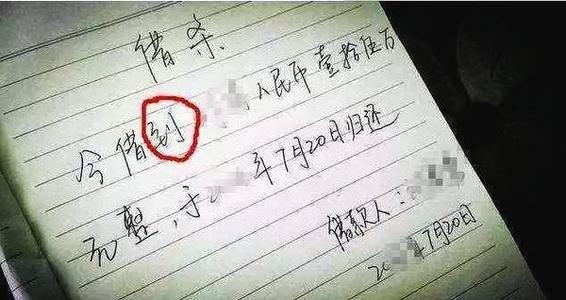 借条
今借到 人民币壹拾伍万
元整，于 年7月20日归还
借款人：
20 年7月20日